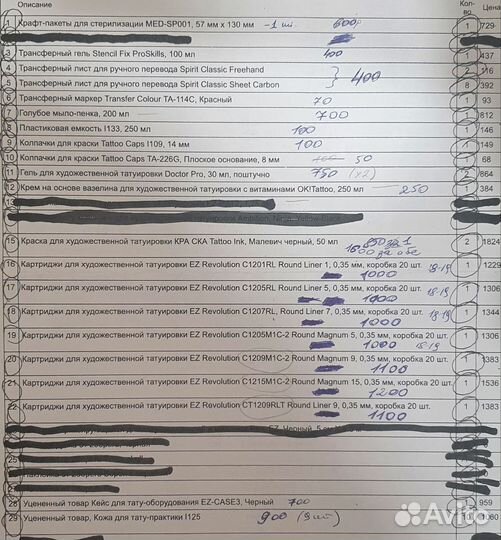 Описание Кол-во Цена
1 Крафт-пакеты для стерилизации MED-SP001, 57 мм x 130 мм -1 шт 600р 1 729
3 Трансферный гель Stencil Fix ProSkills, 100 мл 400 1 437
4 Трансферный лист для ручного перевода Spirit Classic Freehand 2 116
5 Трансферный лист для ручного перевода Spirit Classic Sheet Carbon } 400 8 392
6 Трансферный маркер Transfer Colour TA-114C, Красный 70 1 93
7 Голубое мыло-пенка, 200 мл 700 1 812
8 Пластиковая емкость I133, 250 мл 100 1 146
9 Колпачки для краски Tattoo Caps I109, 14 мм 100 1 149
10 Колпачки для краски Tattoo Caps TA-226G, Плоское основание, 8 мм 50 1 68
11 Гель для художественной татуировки Doctor Pro, 30 мл, поштучно 750 (x2) 2 864
12 Крем на основе вазелина для художественной татуировки с витаминами OK!Tattoo, 250 мл 250 1 384
15 Краска для художественной татуировки КРАСКА Tattoo Ink, Малевич черный, 50 мл 850 за 1 2 1824
1600 за обе
16 Картриджи для художественной татуировки EZ Revolution C1201RL Round Liner 1, 0,35 мм, коробка 20 шт. 18-19 1 1229
1000
17 Картриджи для художественной татуировки EZ Revolution C1205RL Round Liner 5, 0,35 мм, коробка 20 шт. 18-19 1 1306
1000
18 Картриджи для художественной татуировки EZ Revolution C1207RL, Round Liner 7, 0,35 мм, коробка 20 шт. 18-19 1 1344
1000
19 Картриджи для художественной татуировки EZ Revolution C1205M1C-2 Round Magnum 5, 0,35 мм, коробка 20 шт. 1 1306
1000 18-19
20 Картриджи для художественной татуировки EZ Revolution C1209M1C-2 Round Magnum 9, 0,35 мм, коробка 20 шт. 1 1383
1100
21 Картриджи для художественной татуировки EZ Revolution C1215M1C-2 Round Magnum 15, 0,35 мм, коробка 20 шт. 1 1536
1200
22 Картриджи для художественной татуировки EZ Revolution CT1209RLT Round Liner 9, 0,35 мм, коробка 20 шт. 1 1383
1100
28 Уцененный товар Кейс для тату-оборудования EZ-CASE3, Черный 700 1 959
29 Уцененный товар, Кожа для тату-практики I125 900 (9шт) 10 1060
Avito